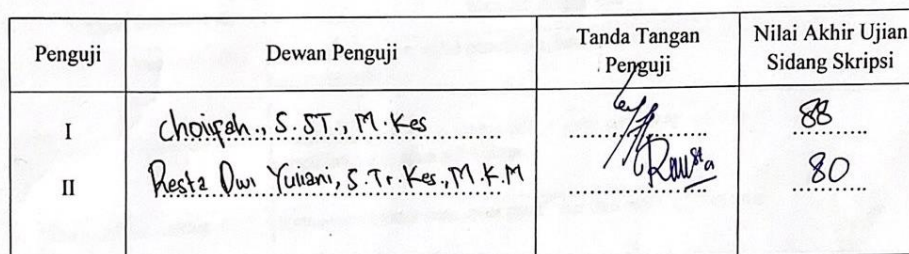 Penguji Dewan Penguji Tanda Tangan Penguji Nilai Akhir Ujian Sidang Skripsi
I Choirfah., S.ST., M.Kes 88
II Resta Dwi Yuliani, S.Tr.Kes., M.K.M 80